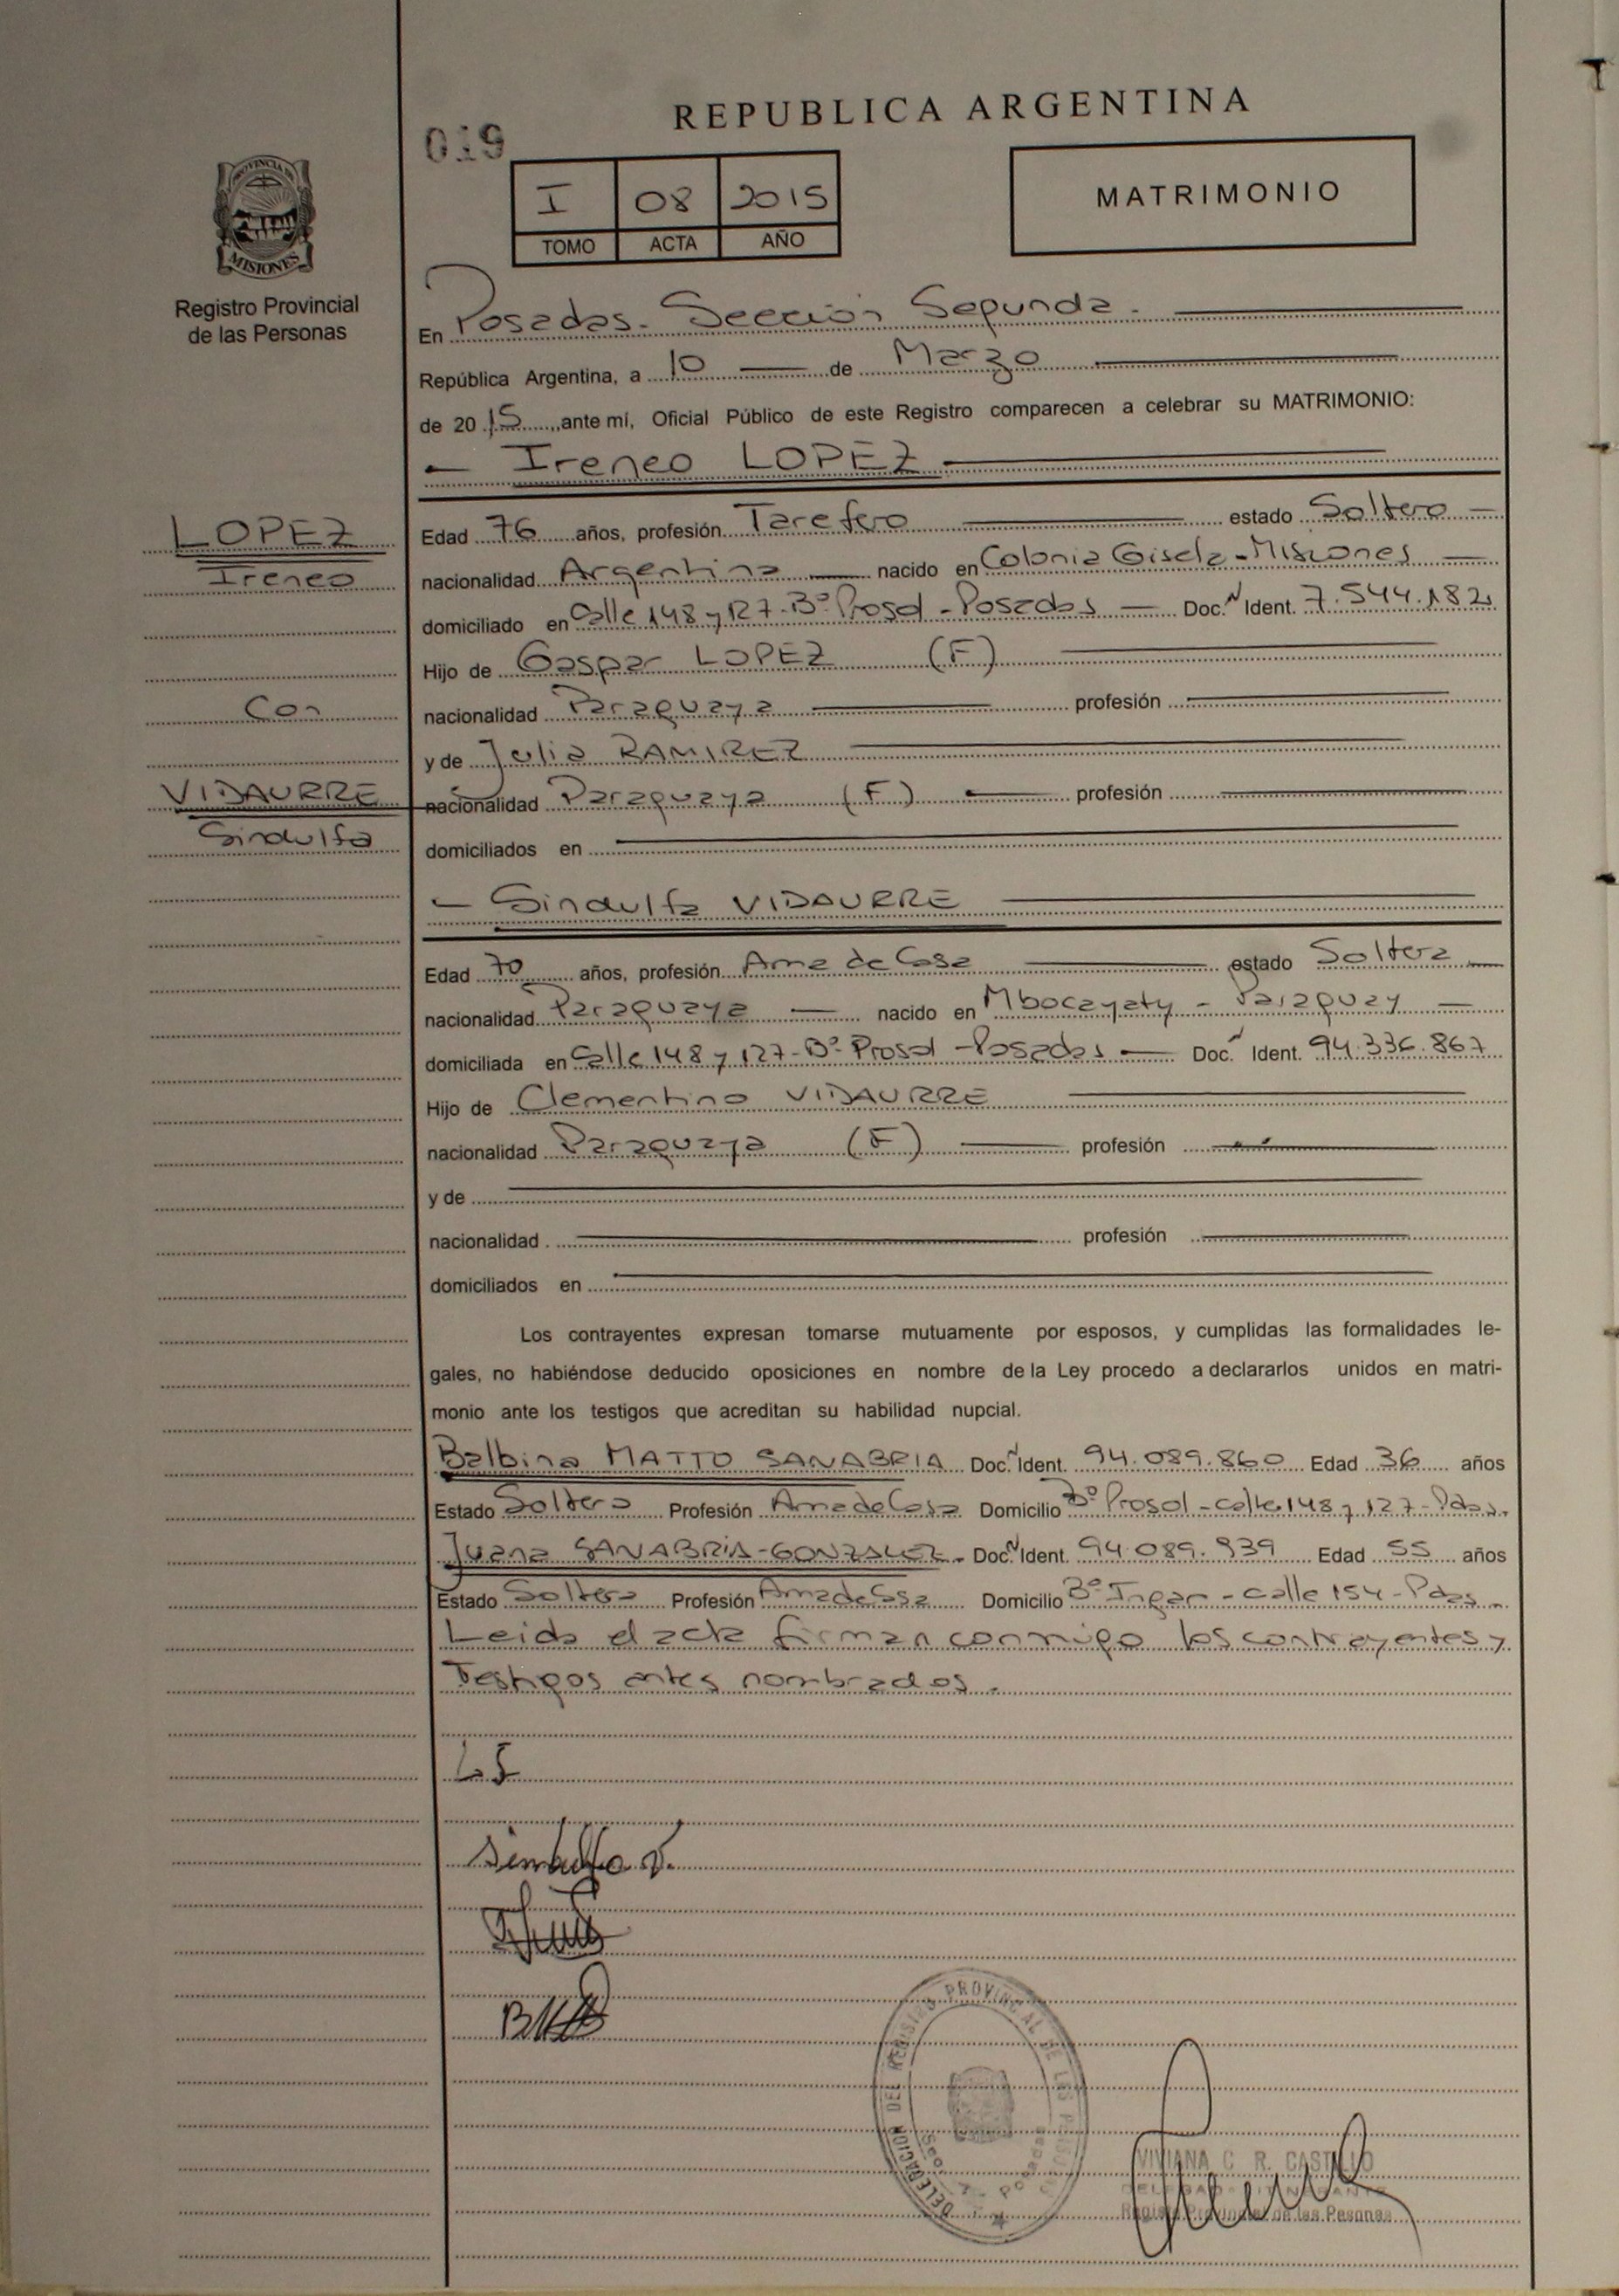 REPUBLICA ARGENTINA
019
I 08 2015
TOMO ACTA AÑO
MATRIMONIO
PROVINCIA DE
MISIONES
Registro Provincial
de las Personas
En Posadas. Sección Segunda.
República Argentina, a 10 de Marzo
de 2015, ante mí, Oficial Público de este Registro comparecen a celebrar su MATRIMONIO:
Ireneo LOPEZ
LOPEZ
Ireneo
Con
VIDAURRE
Sindulfa
Edad 76 años, profesión Tarefero estado Soltero
nacionalidad Argentina nacido en Colonia Gisela - Misiones
domiciliado en Calle 148 y 127 - Bº Prosol - Posadas Doc. Ident. 7.544.182
Hijo de Gaspar LOPEZ (F)
nacionalidad Paraguaya profesión
y de Julia RAMIREZ
nacionalidad Paraguaya (F) profesión
domiciliados en
Sindulfa VIDAURRE
Edad 70 años, profesión Ama de Casa estado Soltera
nacionalidad Paraguaya nacido en Mbocayaty - Paraguay
domiciliada en Calle 148 y 127 - Bº Prosol - Posadas Doc. Ident. 94.336.867
Hijo de Clementino VIDAURRE
nacionalidad Paraguaya (F) profesión
y de
nacionalidad profesión
domiciliados en
Los contrayentes expresan tomarse mutuamente por esposos, y cumplidas las formalidades le-
gales, no habiéndose deducido oposiciones en nombre de la Ley procedo a declararlos unidos en matri-
monio ante los testigos que acreditan su habilidad nupcial.
Balbina MATTO SANABRIA Doc. Ident. 94.089.860 Edad 36 años
Estado Soltera Profesión Ama de Casa Domicilio Bº Prosol - calle 148 y 127 - Pdas.
Juana SANABRIA - GONZALEZ. Doc. Ident. 94.089.939 Edad 55 años
Estado Soltera Profesión Ama de Casa Domicilio Bº - calle 154 - Pdas.
Leida el acta firman conmigo los contrayentes y
Testigos antes nombrados.
Sindulfa V.
DELEGACION DEL REGISTRO PROVINCIAL DE LAS
VIVIANA C. R. CASTILLO
Registro Provincial de las Personas